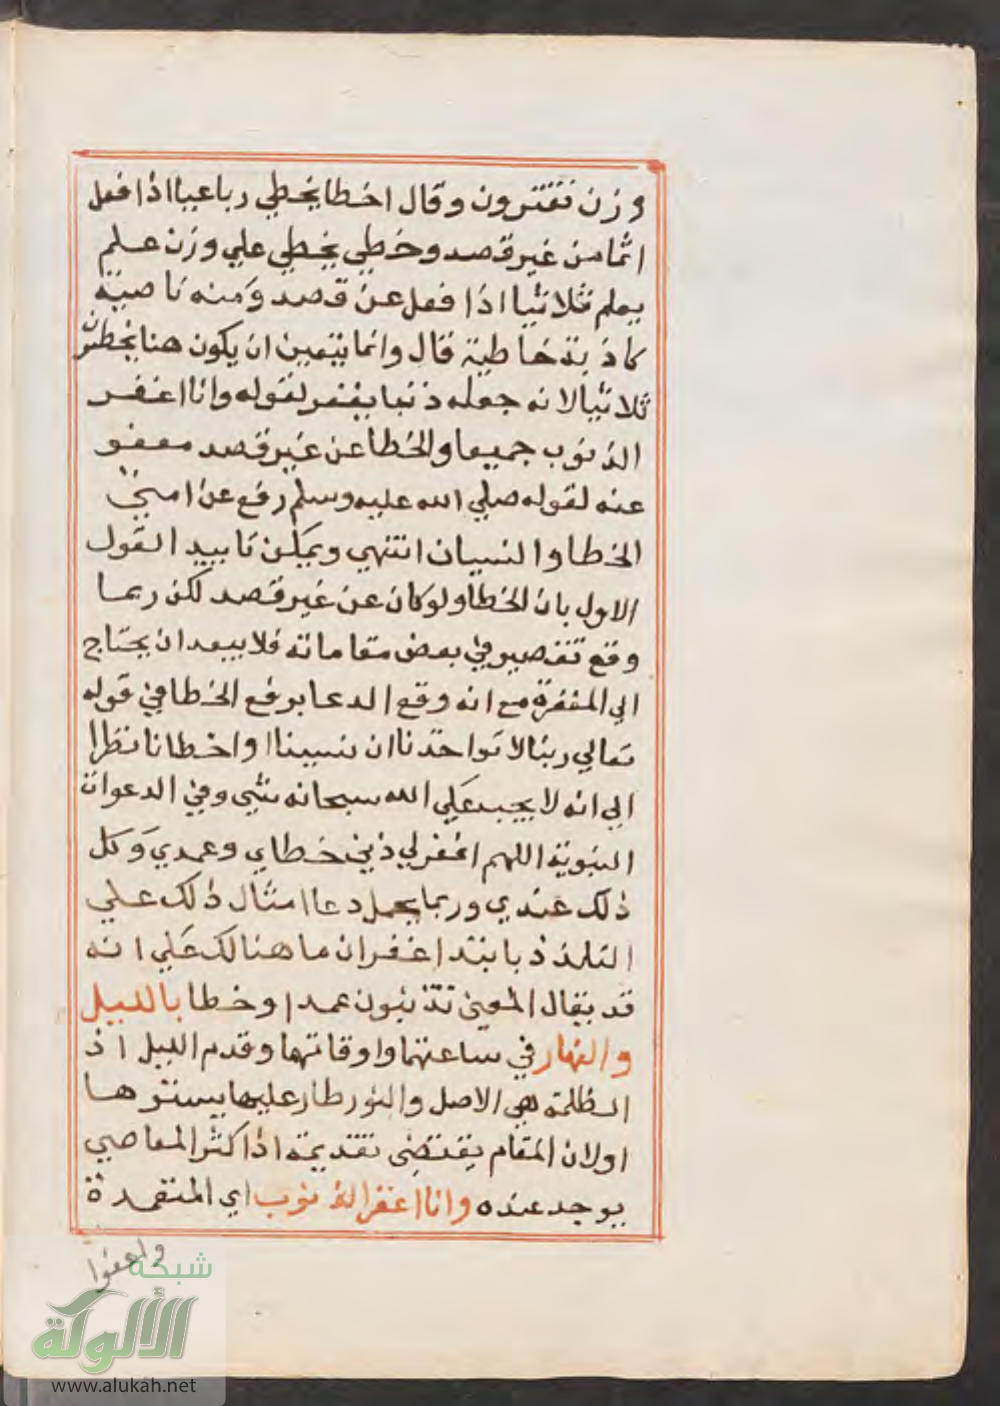 وزن تفترون وقال اخطا يخطي رباعيا اذا فعل
اثما من غير قصد وخطي يخطي علي وزن علم
يعلم ثلاثيا اذا فعل عن قصد ومنه ناصية
كاذبة خاطية قال وانما يتعين ان يكون هنا يخطئون
ثلاثيا لانه جعله ذنبا يغفر لقوله وانا اغفر
الذنوب جميعا والخطا عن غير قصد معفو
عنه لقوله صلي الله عليه وسلم رفع عن امتي
الخطا والنسيان انتهي ويمكن تاييد القول
الاول بان الخطا ولو كان عن غير قصد لكن ربما
وقع تقصير في بعض مقاماته فلا يبعد ان يحتاج
الي المغفرة مع انه وقع الدعا برفع الخطا في قوله
تعالي ربنا لا تواخذنا ان نسينا او اخطانا نظرا
الي انه لا يجب علي الله سبحانه شي وفي الدعوات
النبوية اللهم اغفر لي ذنبي خطاي وعمدي وكل
ذلك عندي وربما يحمل دعا امثال ذلك علي
التلذذ بابتدا غفران ما هنالك علي انه
قد يقال المعني تذنبون عمدا وخطا بالليل
والنهار في ساعتهما واوقاتهما وقدم الليل اذ
الظلمة هي الاصل والنور طار عليها يسترها
او لان المقام يقتضي تقديمه اذا كثر المعاصي
يوجد عنده وانا اغفر الذنوب اي المتقدمة
واعفوا
شبكة
الألوكة
www.alukah.net